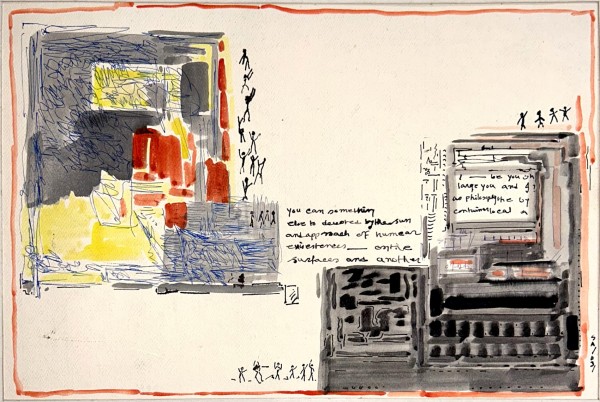 you can something
else to devoured by the sun
and approach of humear
existences — ontile
surfaces and another
I — be you on
large you and
as philosophy the by
continuous local a